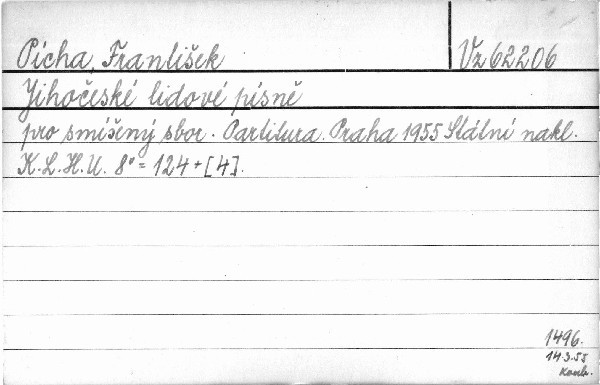 Pícha, František Vz 62206
Jihočeské lidové písně
pro smíšený sbor. Partitura. Praha 1955 Státní nakl.
K.L.H.U. 8° = 124 + [4].
1496.
14.9.55